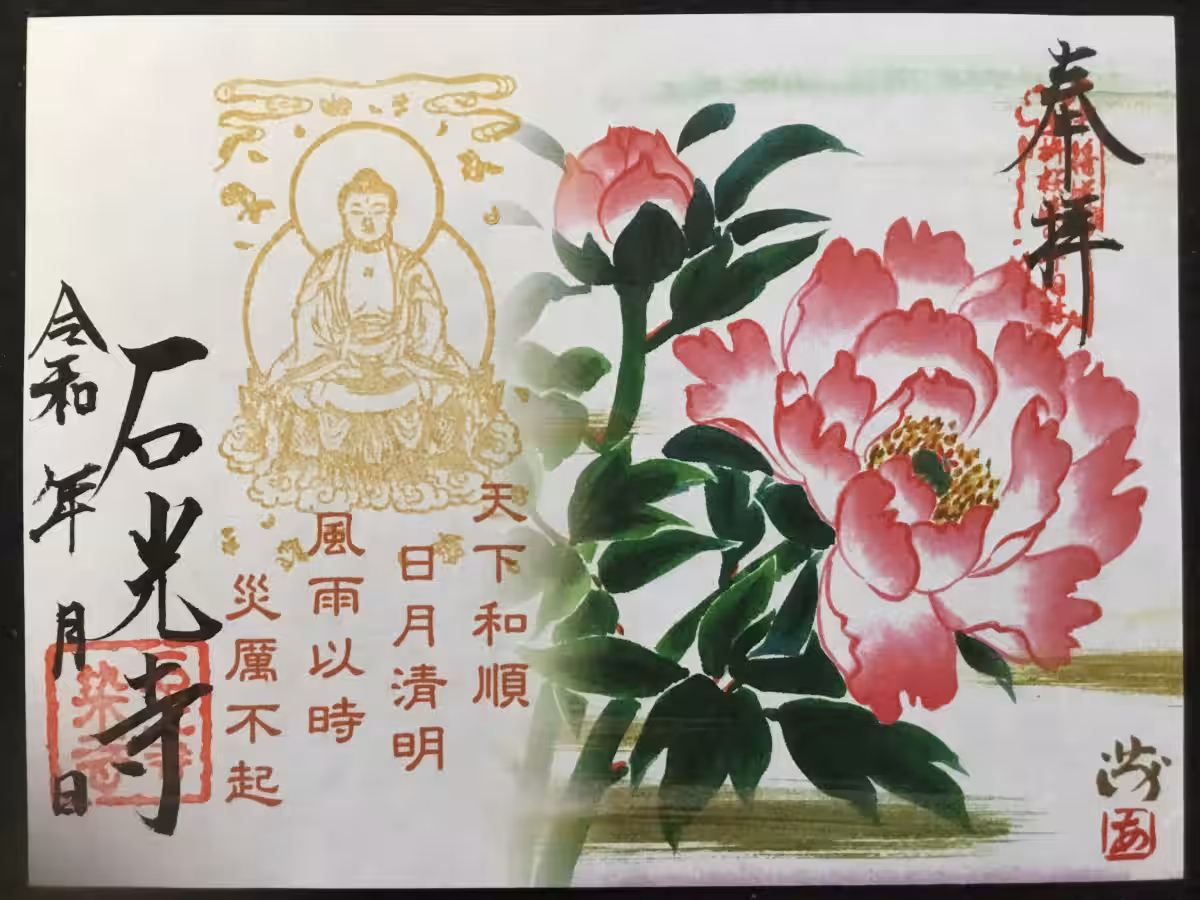 奉拝
天下和順
日月清明
風雨以時
災厲不起
石光寺
令和 年 月 日